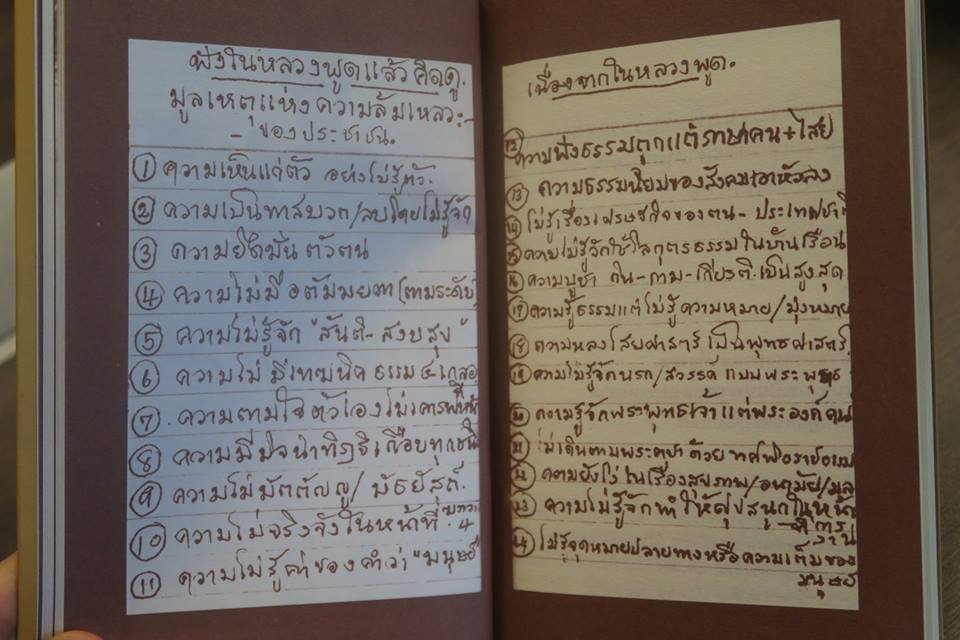 ฟังในหลวงพูดแล้วคิดดู.
มูลเหตุแห่งความล้มเหลว:-
- ของประชาชน.
① ความเห็นแก่ตัว อย่างไม่รู้ตัว.
② ความเป็นทาสบวก/ลบโดยไม่รู้จัก
③ ความยึดมั่น ตัวตน
④ ความไม่มี อตัมมยตา (ตามระดับ)
⑤ ความไม่รู้จัก "สันติ-สงบสุข"
⑥ ความไม่ มีเทคนิค ธรรม ๔ เกลอ
⑦ ความตามใจตัวเองไม่เคารพ
⑧ ความมีมิจฉาทิฏฐิเกือบทุกชนิด
⑨ ความไม่มัตตัญญู/
⑩ ความไม่จริงจังในหน้าที่ 4
⑪ ความไม่รู้ค่าของคำว่า "มนุษย์"
เนื่องจากในหลวงพูด.
⑫ ความฟังธรรมถูกแต่ภาษาคน+ไสย
⑬ ความธรรมนิยมของสังคมเอาหัวลง
⑭ ไม่รู้เรื่องเศรษฐกิจของตน-ประเทศชาติ
⑮ ความไม่รู้จักใช้โลกุตรธรรมในบ้านเรือน
⑯ ความบูชา กิน-กาม-เกียรติ.เป็นสูงสุด
⑰ ความรู้ธรรมแต่ไม่รู้ความหมาย/มุ่งหมาย
⑱ ความหลงไสยศาสตร์เป็นพุทธศาสตร์
⑲ ความไม่รู้จักนรก/สวรรค์ แบบพระพุทธ
⑳ ความรู้จักพระพุทธเจ้าแต่พระองค์คน
㉑ ไม่เดินตามพระราชา ด้วย ทศพิธราชธรรม
㉒ ความยังโง่ ในเรื่องสุขภาพ/อนามัย/มูล
㉓ ความไม่รู้จักทำให้สุขสนุกในหน้า
ที่การงาน
㉔ ไม่รู้จุดหมายปลายทางหรือความเต็มของ
มนุษย์